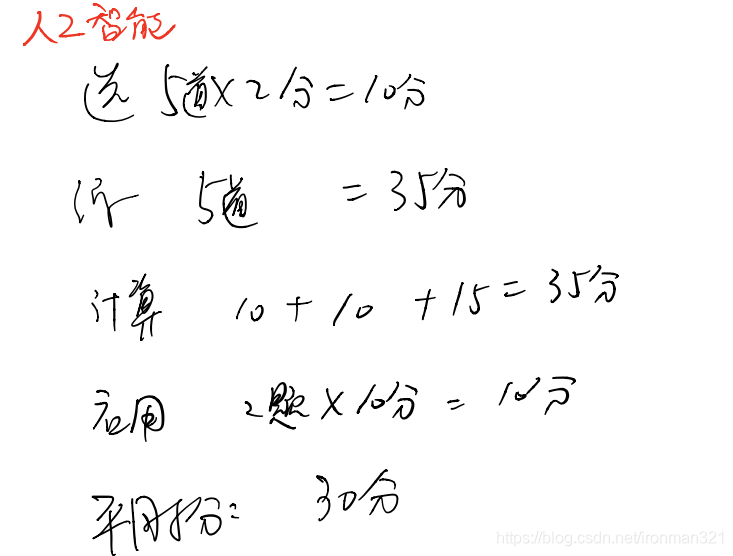 人工智能
选 5道×2分=10分
5道 =35分
计算 10+10+15=35分
应用 2题×10分=10分
平时分: 30分
https://blog.csdn.net/ironman321